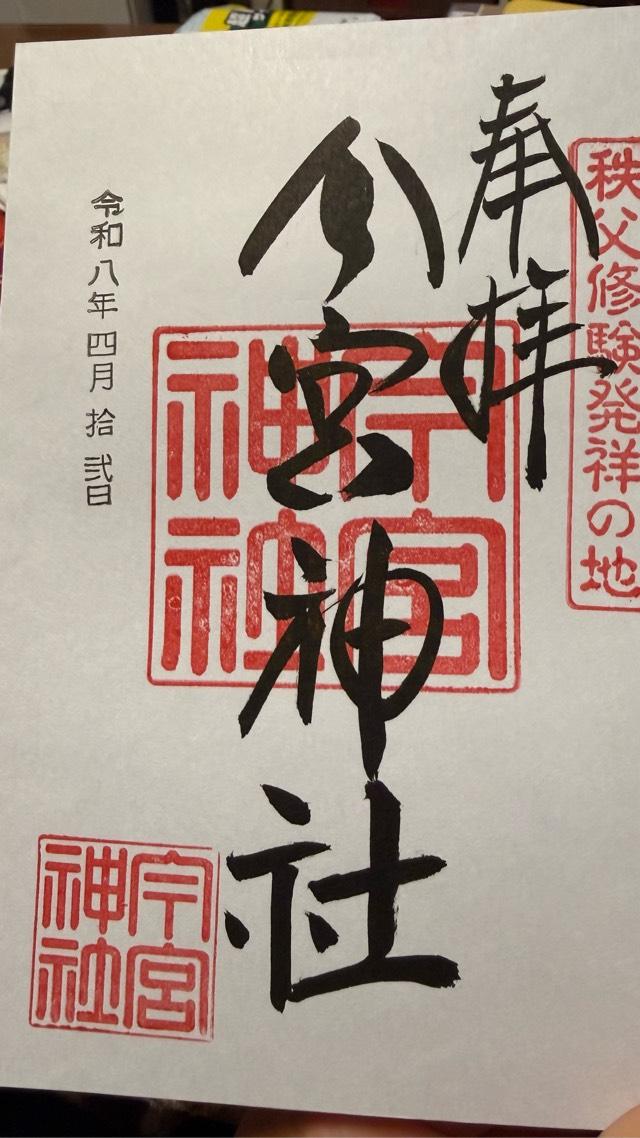 秩父修験発祥の地
奉拝
今宮神社
今宮
神社
令和八年四月拾弐日
今宮
神社